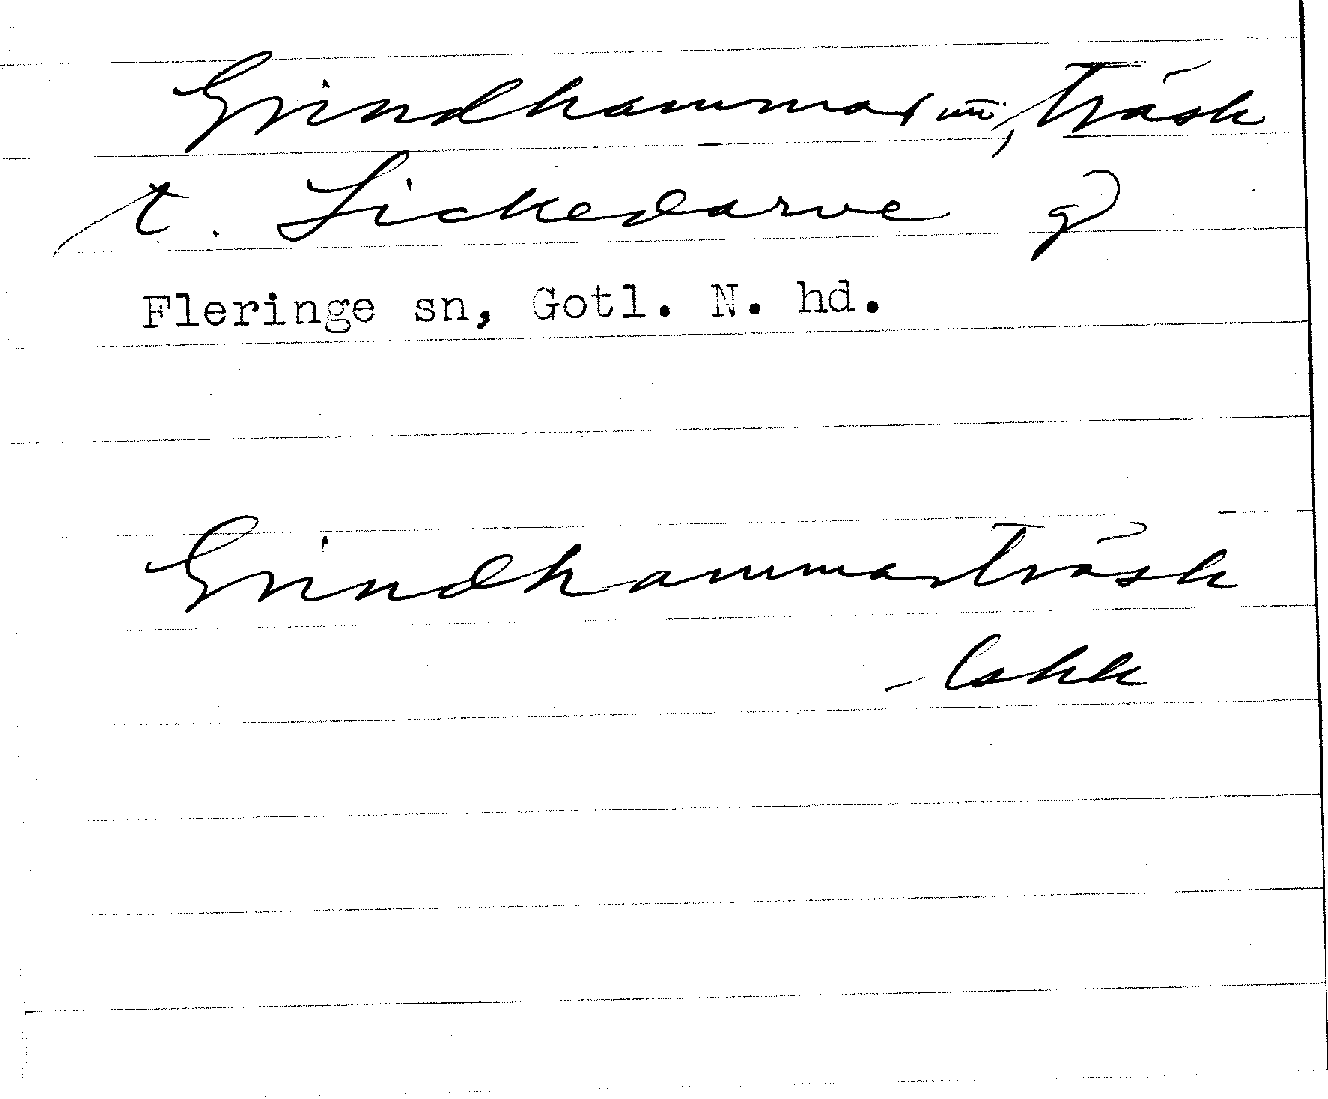 Grindhammar, Träsk
t. Lickedarve g
Fleringe sn, Gotl. N. hd.
Grindhammarträsk